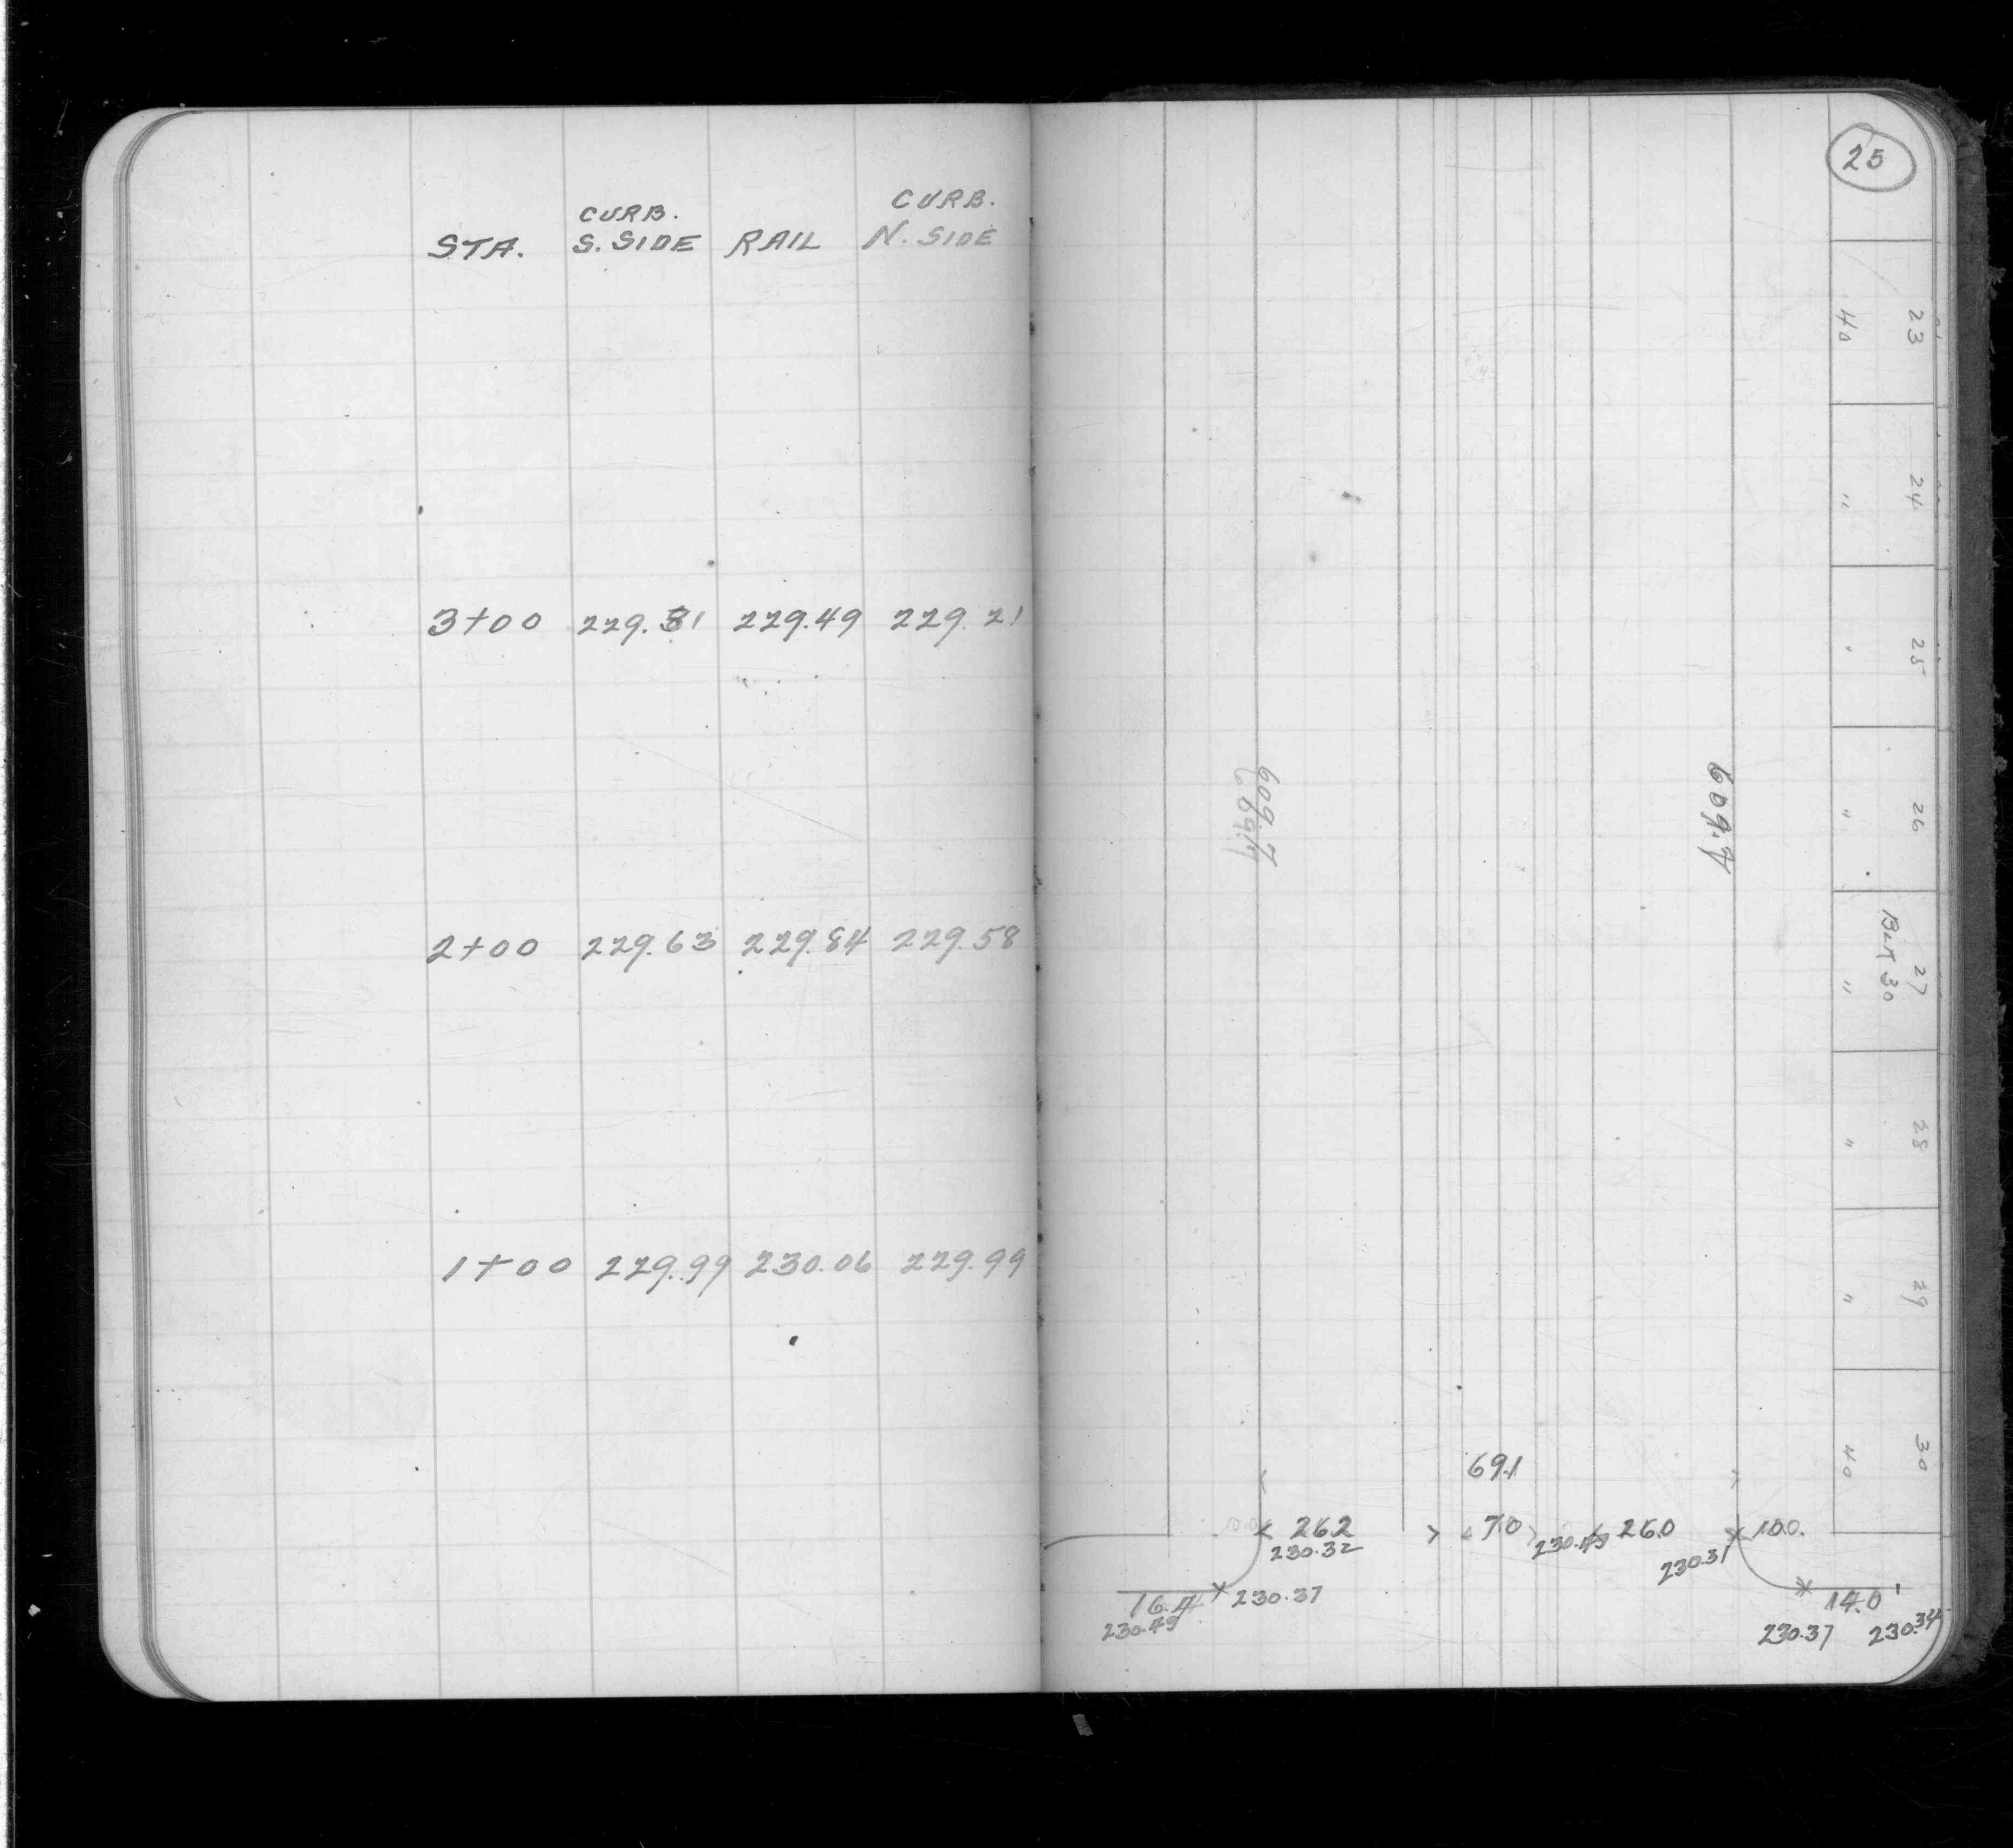 CURB. CURB.
STA. S. SIDE RAIL N. SIDE
3+00 229.31 229.49 229.21
2+00 229.63 229.84 229.58
1+00 229.99 230.06 229.99
25
23
40
24
"
25
"
609.7
609.7
609.7
26
"
27
Blk 30
"
28
"
29
"
30
40
69.1
10.0 26.2 7.0 26.0 10.0
230.32 230.49 230.31
16.4 230.37 14.0'
230.49 230.37 230.34